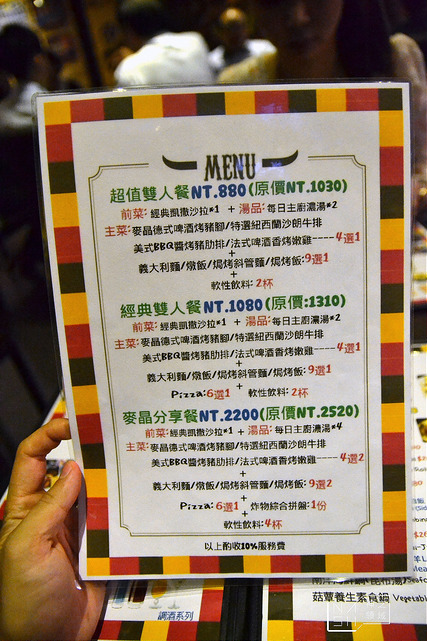 MENU
超值雙人餐NT.880(原價NT.1030)
前菜:經典凱撒沙拉*1 + 湯品:每日主廚濃湯*2
主菜:麥晶德式啤酒烤豬腳/特選紐西蘭沙朗牛排
美式BBQ醬烤豬肋排/法式啤酒香烤嫩雞----4選1
+
義大利麵/燉飯/焗烤斜管麵/焗烤飯:9選1
+
軟性飲料:2杯
經典雙人餐NT.1080(原價:1310)
前菜:經典凱撒沙拉*1 + 湯品:每日主廚濃湯*2
主菜:麥晶德式啤酒烤豬腳/特選紐西蘭沙朗牛排
美式BBQ醬烤豬肋排/法式啤酒香烤嫩雞----4選1
+
義大利麵/燉飯/焗烤斜管麵/焗烤飯:9選1
+
Pizza:6選1 軟性飲料:2杯
麥晶分享餐NT.2200(原價NT.2520)
前菜:經典凱撒沙拉*1 + 湯品:每日主廚濃湯*4
主菜:麥晶德式啤酒烤豬腳/特選紐西蘭沙朗牛排
美式BBQ醬烤豬肋排/法式啤酒香烤嫩雞----4選2
+
義大利麵/燉飯/焗烤斜管麵/焗烤飯:9選2
+
Pizza:6選1 + 炸物綜合拼盤:1份
+
軟性飲料:4杯
以上酌收10%服務費
調酒系列
菇蕈養生素食鍋 Vegetabl